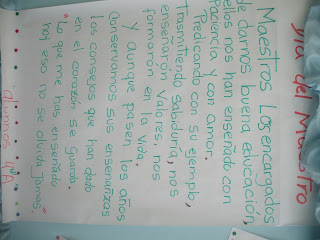 Día del Maestro
Maestros Los encargados
de darnos buena educación,
ellos nos han enseñado con
Paciencia y con amor.
Predicando con su ejemplo,
Trasmitiendo sabiduría, nos
enseñaron valores, nos
formarón en la vida.
Y aunque pasen los años
Conservamos sus enseñanzas
los consejos que han dado
en el corazón se guarda.
"Lo que me has enseñado
hoy eso no se olvida Jamas."
alumnos 4°A